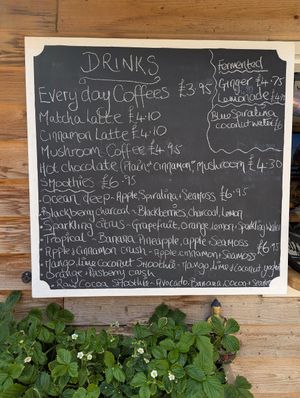 DRINKS
Every day Coffees £3.95
Matcha Latte £4.10
Cinnamon Latte £4.10
Mushroom Coffee £4.95
Hot chocolate (Plain, cinnamon, Mushroom £4.30
Smoothies £6.95
- Ocean deep - Apple, Spiralina + Seamoss £6.95
- Blackberry charcoal - Blackberries, charcoal, Lemon
- Sparkling Citrus - Grapefruit, orange, lemon + Sparkling water
- Tropical - Banana, Pineapple, apple + Seamoss £6.95
- Apple + Cinnamon crush - Apple, cinnamon + Seamoss
- Mango, Lime Coconut Smoothie - Mango, lime + coconut,
- Orange + Rasberry
- Raw Cocoa Smoothie - Avocado, Banana, Cocoa +
Fermented
Ginger £4.75
Lemonade
Blue Spiralina
coconut water £6